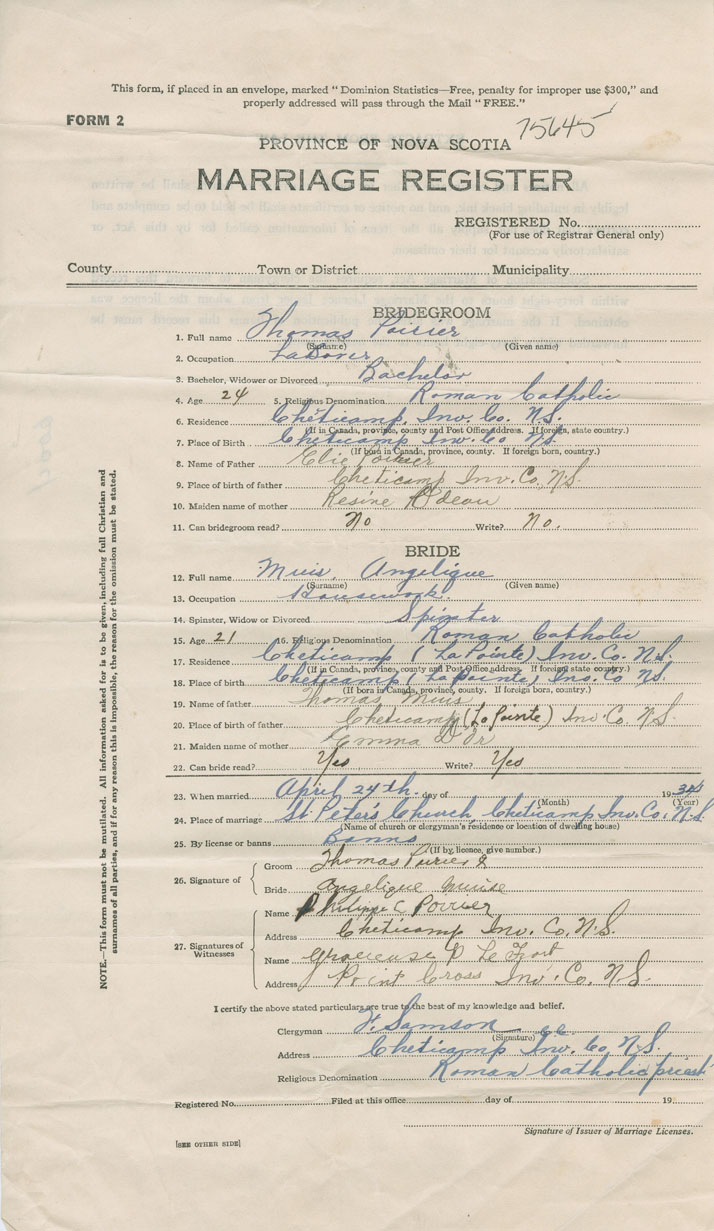 This form, if placed in an envelope, marked "Dominion Statistics—Free, penalty for improper use $300," and
properly addressed will pass through the Mail "FREE."
FORM 2
75645
PROVINCE OF NOVA SCOTIA
MARRIAGE REGISTER
REGISTERED No.
(For use of Registrar General only)
County Town or District Municipality
BRIDEGROOM
1. Full name Thomas Poirier
(Surname) (Given name)
2. Occupation Laborer
3. Bachelor, Widower or Divorced Bachelor
4. Age 24 5. Religious Denomination Roman Catholic
6. Residence Cheticamp, Inv. Co. N.S.
(If in Canada, province, county and Post Office address. If foreign, state country.)
7. Place of Birth Cheticamp Inv. Co N.S.
(If born in Canada, province, county. If foreign born, country.)
8. Name of Father Elie Poirier
9. Place of birth of father Cheticamp Inv. Co, N.S.
10. Maiden name of mother
11. Can bridegroom read? No Write? No.
BRIDE
12. Full name Muis, Angelique
(Surname) (Given name)
13. Occupation Housework.
14. Spinster, Widow or Divorced Spinster
15. Age 21 16. Religious Denomination Roman Catholic
17. Residence Cheticamp (La Pointe) Inv. Co. N.S.
(If in Canada, province, county and Post Office address. If foreign state country.)
18. Place of birth Cheticamp (La Pointe) Inv. Co. N.S.
(If born in Canada, province, county. If foreign born, country.)
19. Name of father Thomas Muis
20. Place of birth of father Cheticamp (La Pointe) Inv Co. N.S.
21. Maiden name of mother Emma
22. Can bride read? Yes Write? Yes
23. When married April 24th. day of 1934
(Month) (Year)
24. Place of marriage St. Peter's Church Cheticamp Inv. Co, N.S.
(Name of church or clergyman's residence or location of dwelling house)
25. By license or banns Banns
(If by licence, give number.)
26. Signature of
Groom Thomas Poirier
Bride Angelique Muise
27. Signatures of Witnesses
Name Philippe C Poirier
Address Cheticamp Inv. Co, N.S.
Name Gracieuse P LeFort
Address Point Cross Inv. Co. N.S.
I certify the above stated particulars are true to the best of my knowledge and belief.
Clergyman F. Samson
(Signature)
Address Cheticamp Inv. Co N.S.
Religious Denomination Roman Catholic priest
Registered No. Filed at this office day of 19
Signature of Issuer of Marriage Licenses.
[SEE OTHER SIDE]
NOTE.—This form must not be mutilated. All information asked for is to be given, including full Christian and
surnames of all parties, and if for any reason this is impossible, the reason for the omission must be stated.